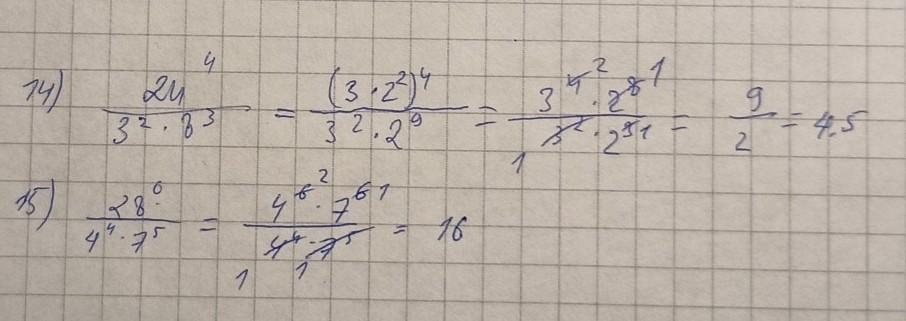 14) 24^4 / (3^2 · 8^3) = (3 · 2^2)^4 / (3^2 · 2^9) = 3^4^2 · 2^8^1 / (3^2 · 2^9^1) 1 = 9/2 = 4.5
15) 28^6 / (4^4 · 7^5) = 4^6^2 · 7^6^1 / (4^4 · 7^5) 1 1 = 16